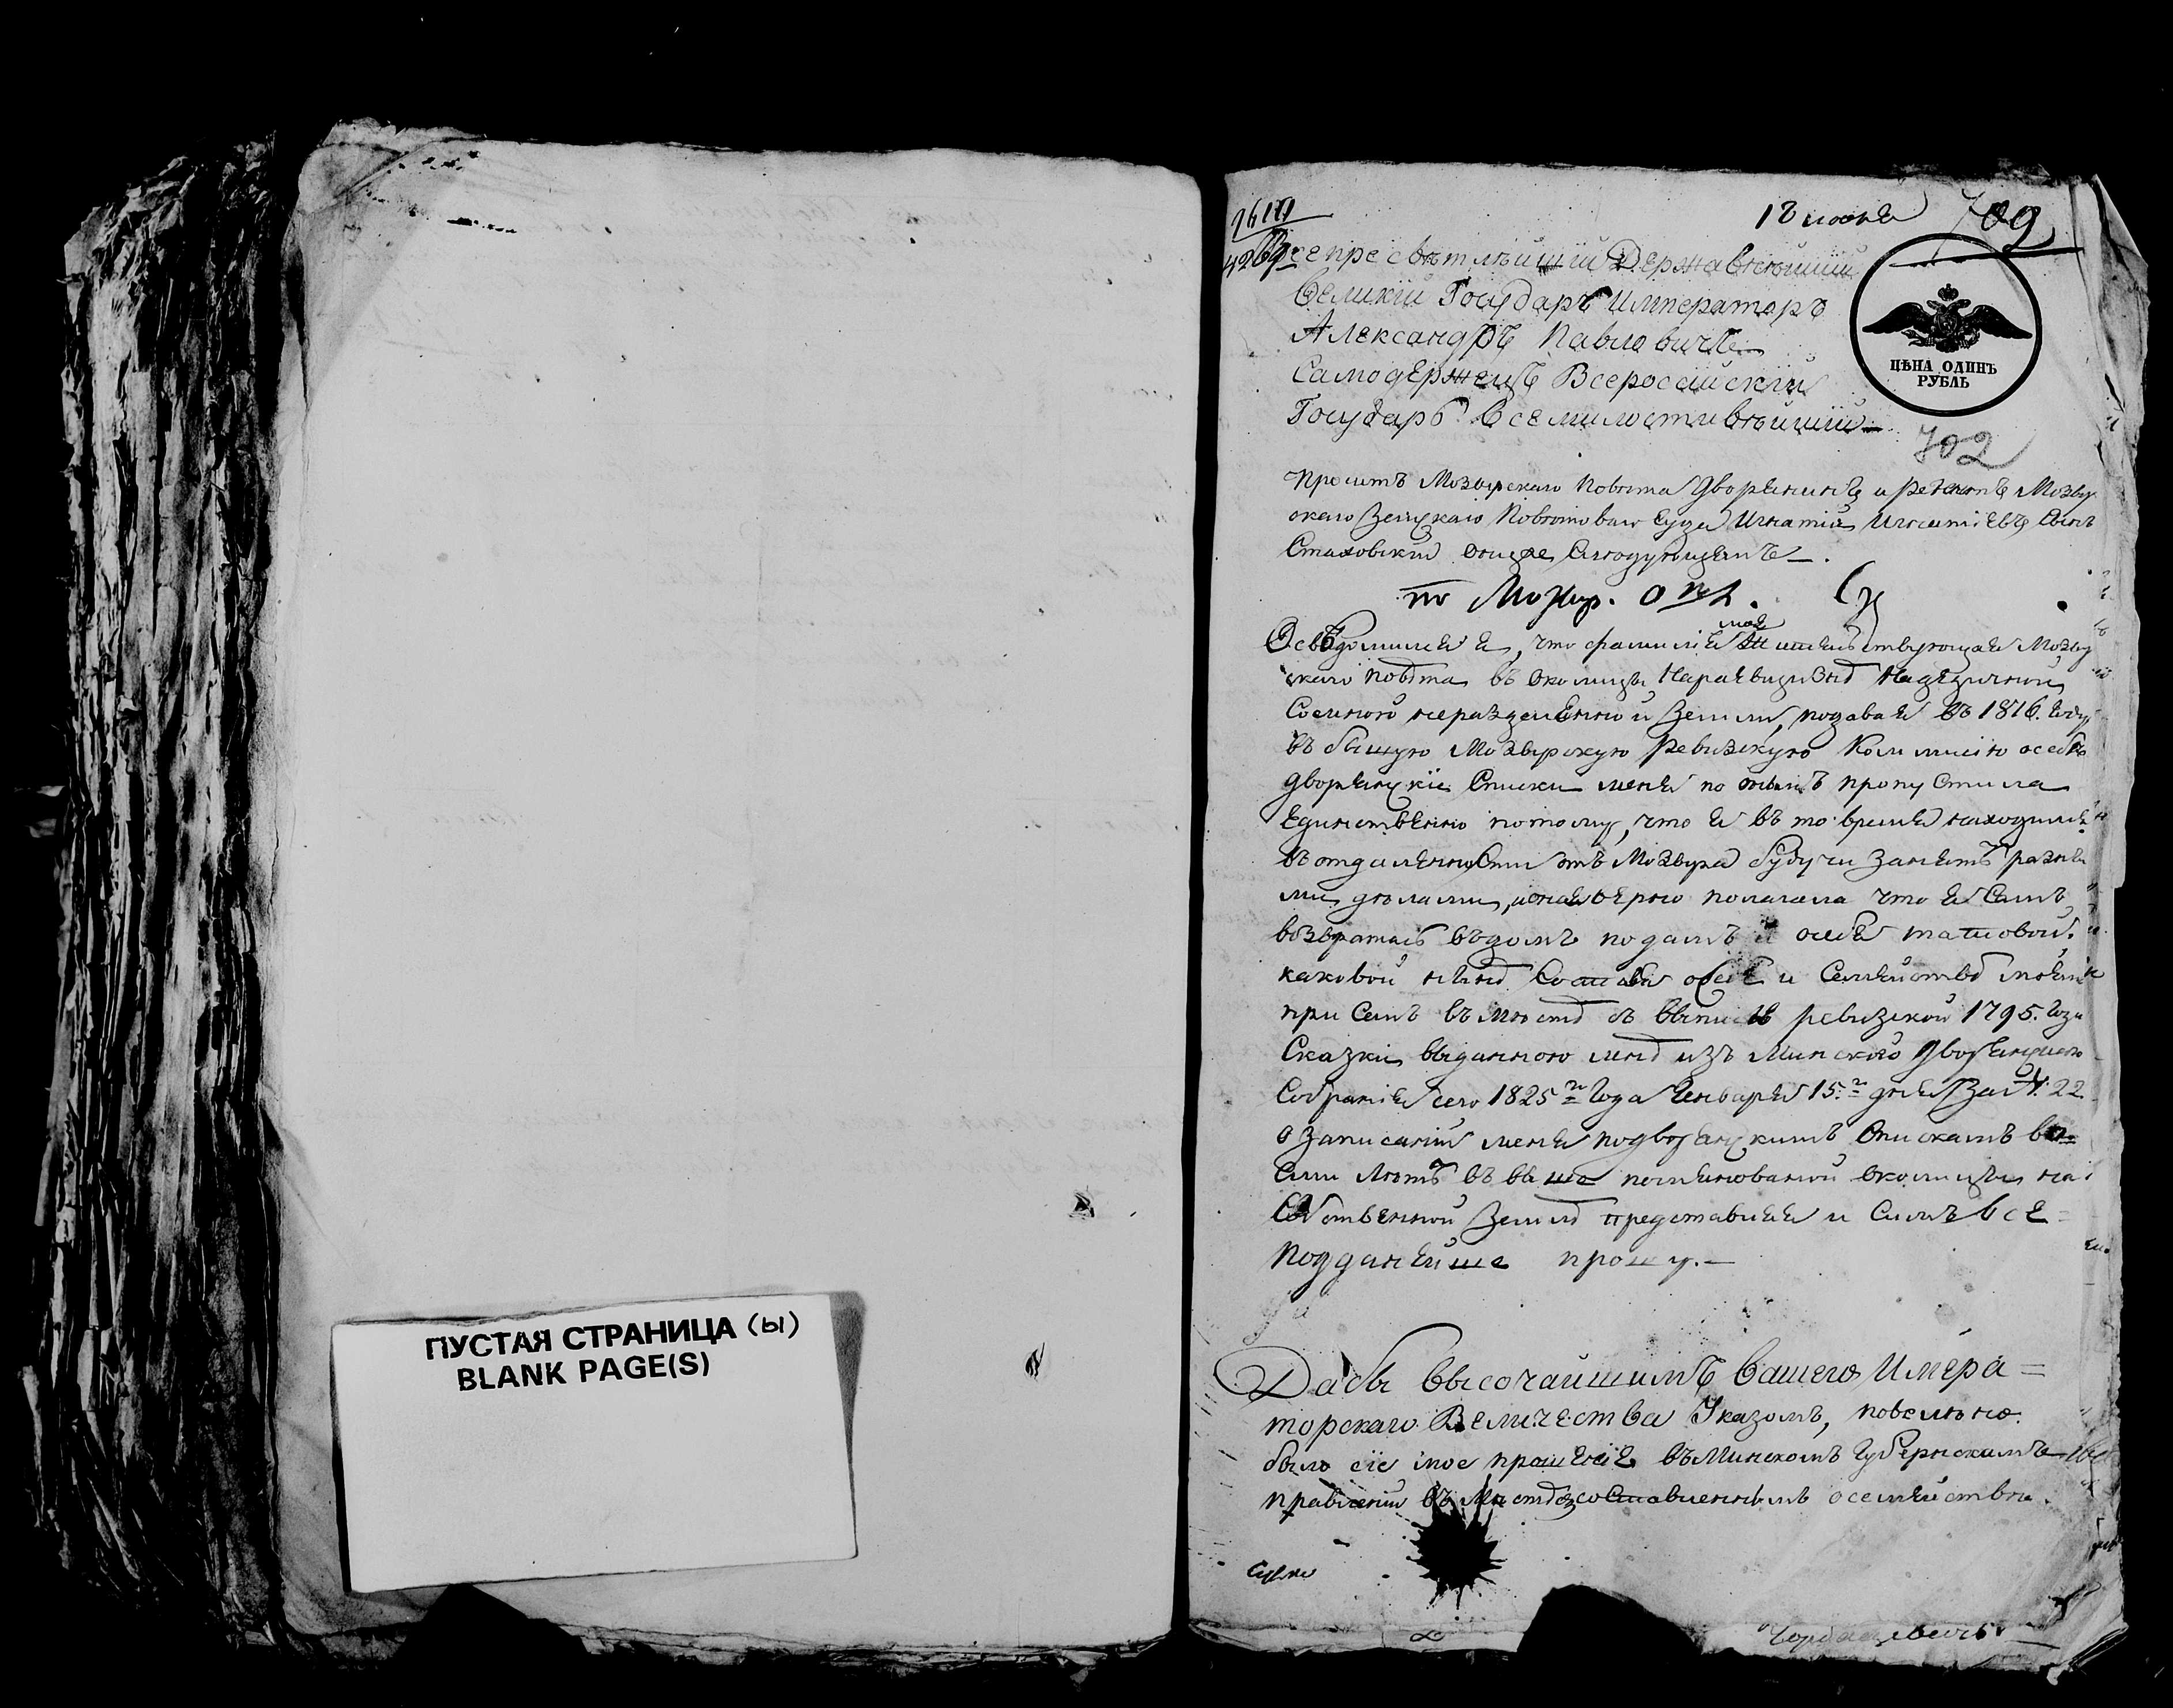 ПУСТАЯ СТРАНИЦА (ы)
BLANK PAGE(S)
18 июня 709
Всепресвѣтлѣйшій Державнѣйшій
Великій Государь Императоръ
Александръ Павловичъ
Самодержецъ Всеросийскій
Государь Всемилостивѣйшій
ЦѢНА ОДИНЪ
РУБЛЬ
702
Проситъ Мозырскаго Повѣта Дворянинъ и Регентъ Мозыр
скаго Земскаго Повѣтоваго Суда Игнатій Игнатіевъ Сынъ
Стаховскій о нижеслѣдующемъ
по Мозыр.
Освѣдомился я, что фамилія моя жительствующая Мозыр
скаго повѣта въ околицѣ
Соемного нераздѣленной Земли, подавая въ 1816. году
въ бывшую Мозырскую Ревизскую Коммисію о себѣ
дворянскіе Списки меня по онымъ пропустила
Единственно потому, что я въ то время находился
въ отдаленности отъ Мозыря будучи занятъ разны
ми дѣлами, и полагала что я Самъ
возвратясь въ домъ подамъ о себѣ таковой.
каковой нынѣ Составя о себѣ и Семействѣ моемъ
при Семъ въ мѣстѣ съ выписью ревизской 1795. Года
Сказки выданного мнѣ изъ Минского Дворянского
Собранія сего 1825го Года Января 15го дня За № 22
о записаніи меня по дворянскимъ Спискамъ во
сми лѣтъ въ выше помянованой околицы на
Собственной Землѣ представляя и Симъ все
подданѣйше прошу.
Дабы Высочайшимъ Вашего Импера
торскаго Величества Указомъ, повелѣно
было сіе мое прошеніе въ Минскомъ Губернскомъ
правленіи въ мѣстѣ съ Составленнымъ о семействѣ